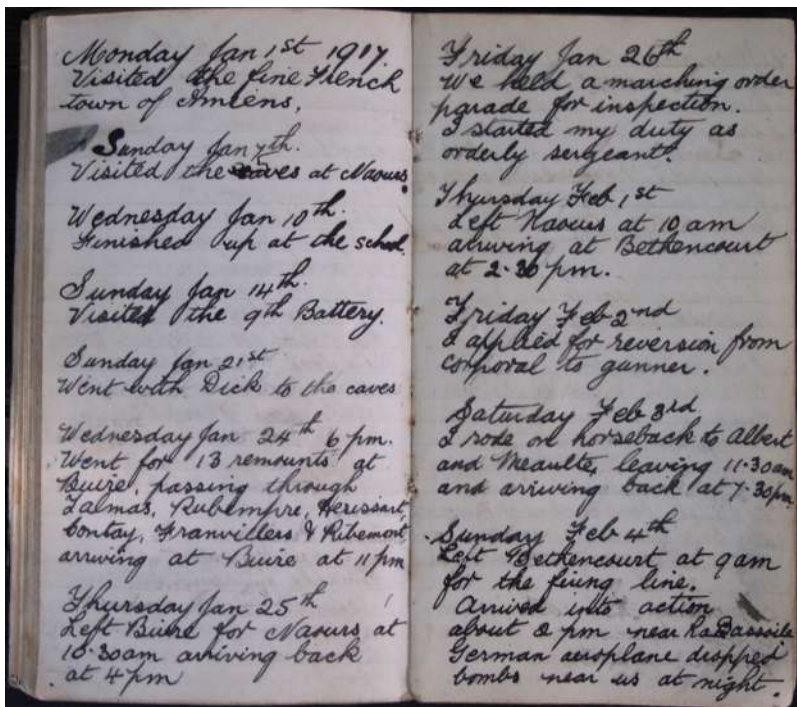 Monday Jan 1st 1917.
Visited the fine French
town of Amiens.
Sunday Jan 7th.
Visited the caves at Naours.
Wednesday Jan 10th.
Finished up at the school.
Sunday Jan 14th.
Visited the 9th Battery.
Sunday Jan 21st
Went with Dick to the caves
Wednesday Jan 24th 6 pm.
Went for 13 remounts at
Buire, passing through
Talmas, Rubempre, Herissart,
Contay, Franvillers & Ribemont
arriving at Buire at 11 pm
Thursday Jan 25th
Left Buire for Naours at
10.30am arriving back
at 4 pm
Friday Jan 26th
We held a marching order
parade for inspection.
I started my duty as
orderly sergeant.
Thursday Feb 1st
Left Naours at 10 am
arriving at Bethencourt
at 2.30 pm.
Friday Feb 2nd
I applied for reversion from
corporal to gunner.
Saturday Feb 3rd
I rode on horseback to Albert
and Meaulte, leaving 11.30am
and arriving back at 7.30pm.
Sunday Feb 4th
Left Bethencourt at 9am
for the firing line.
Arrived into action
about 8 pm near
German aeroplane dropped
bombs near us at night.